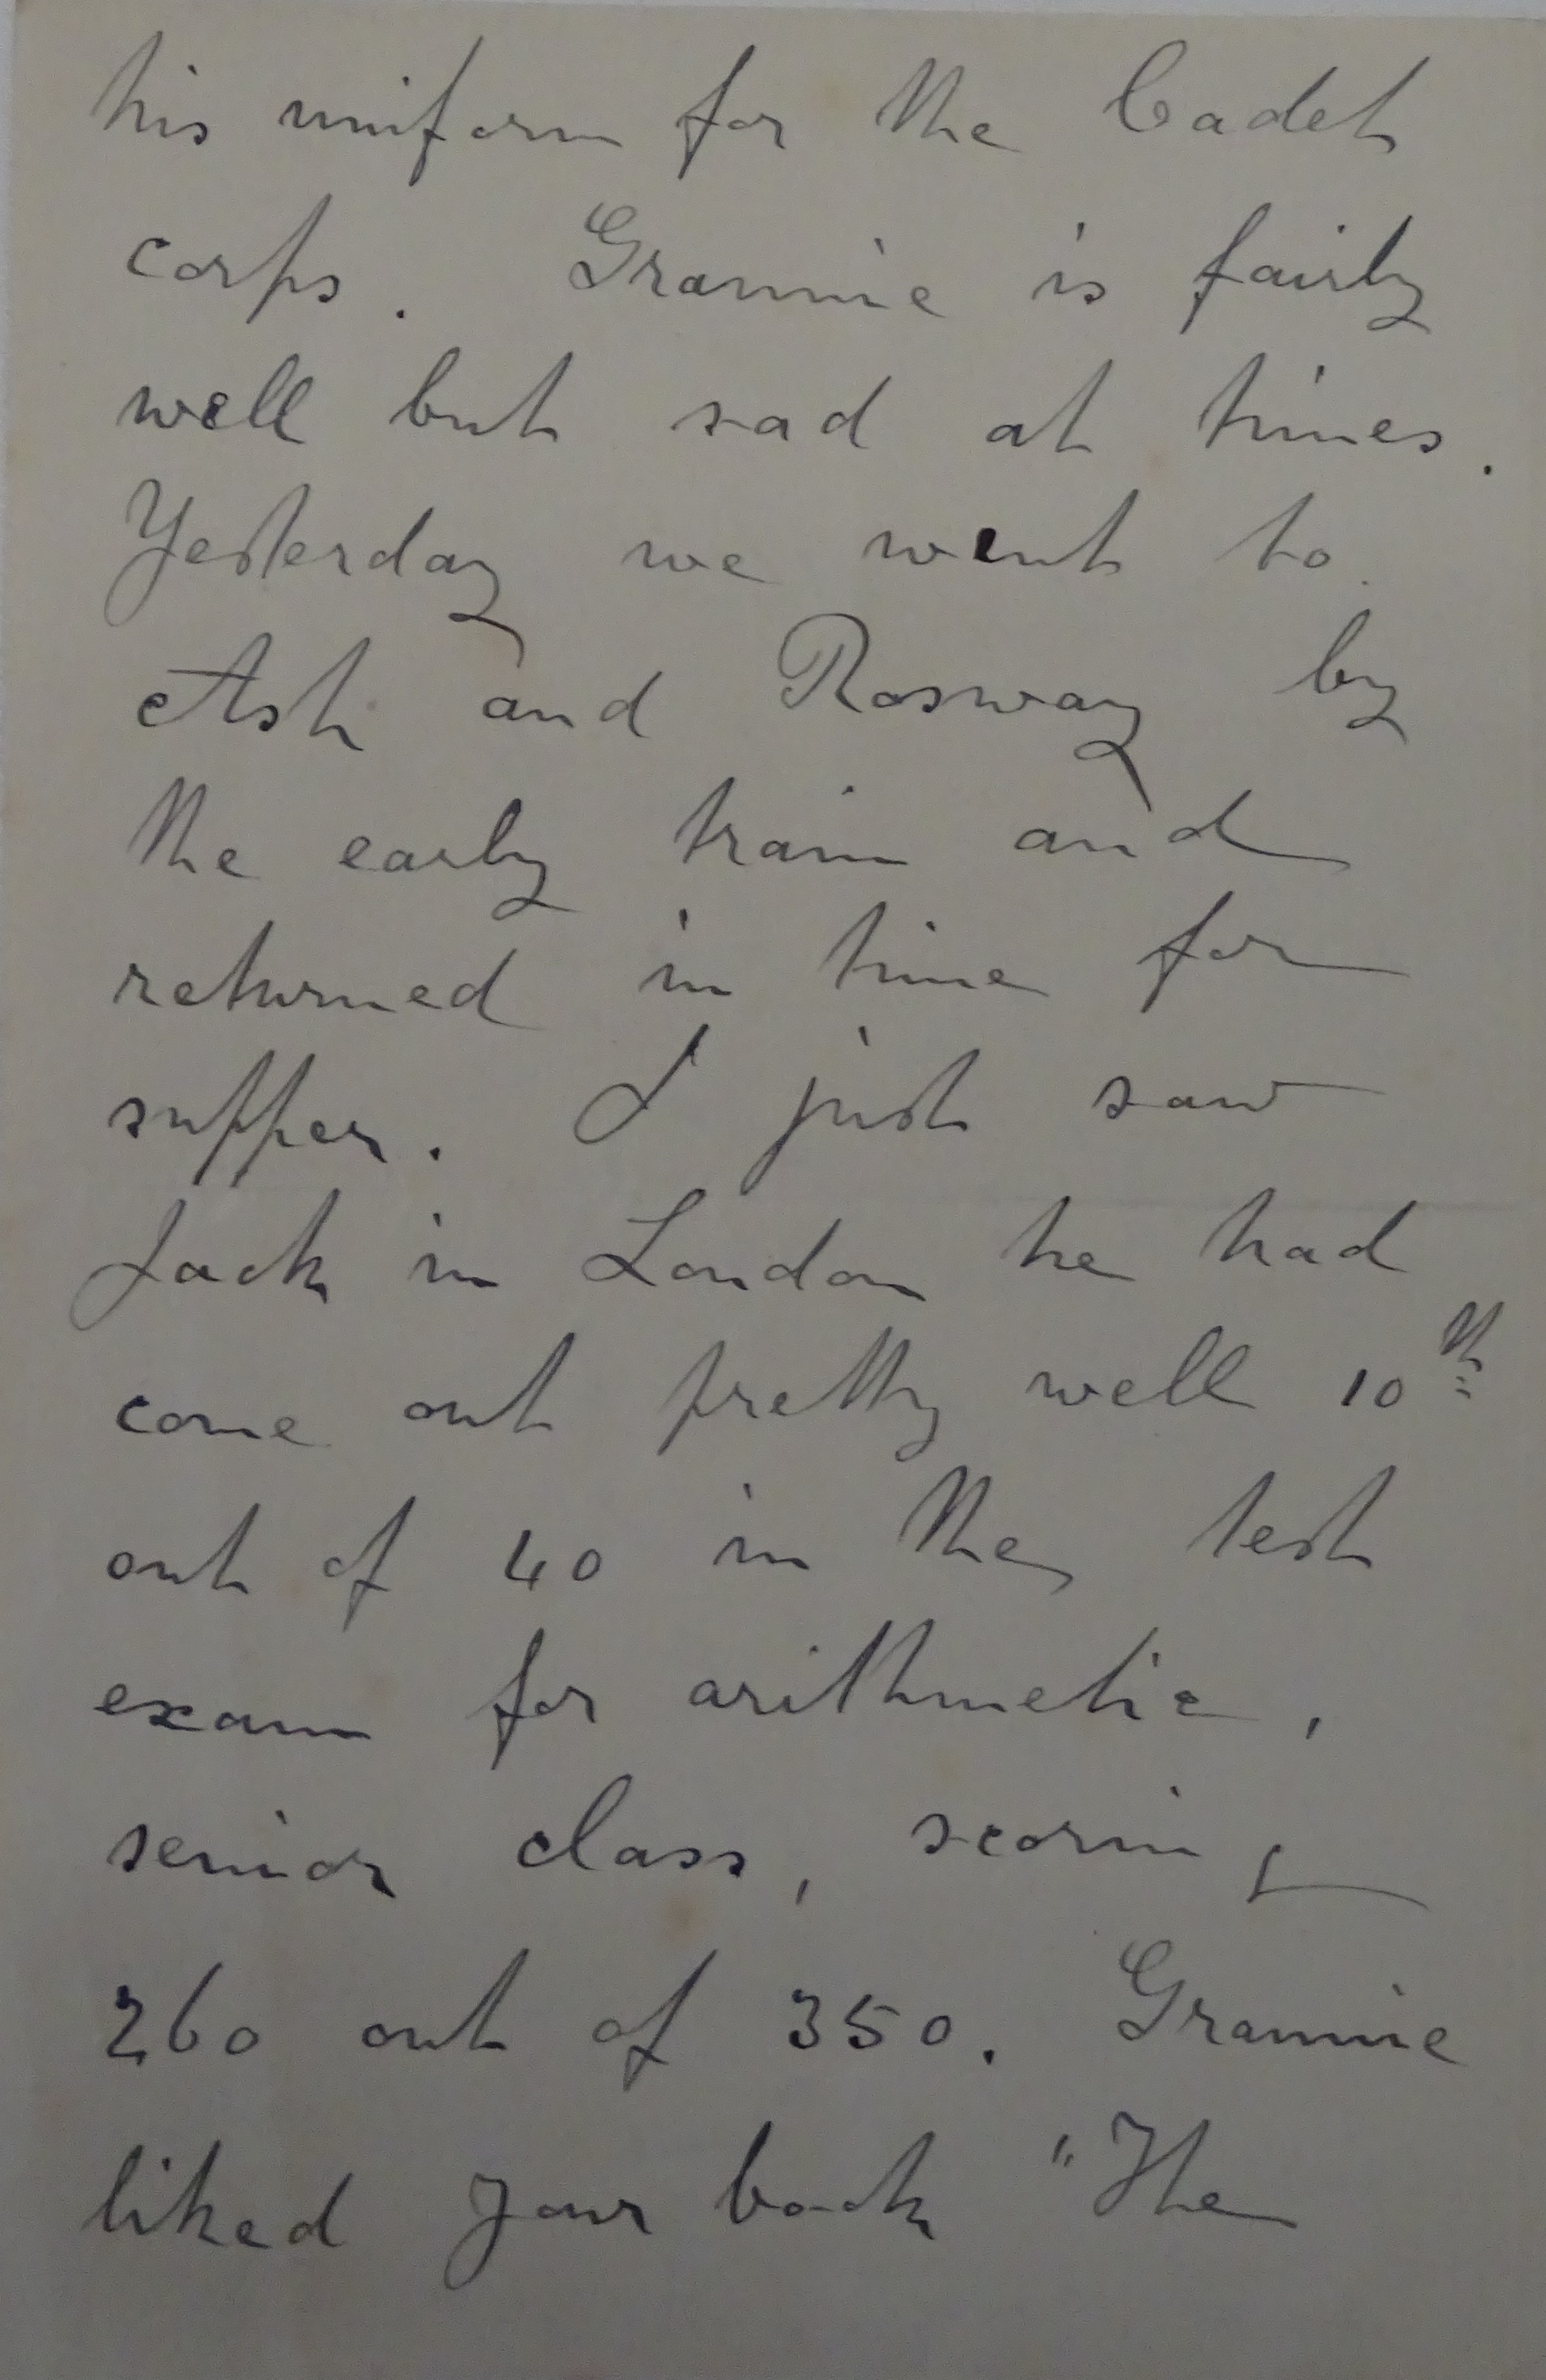 his uniform for the Cadet
corps. Grannie is fairly
well but sad at times.
Yesterday we went to
Ash and Rosway by
the early train and
returned in time for
supper. I just saw
Jack in London he had
come out pretty well 10th
out of 40 in the test
exam for arithmetic,
senior class, scoring
260 out of 350. Grannie
liked your book "The